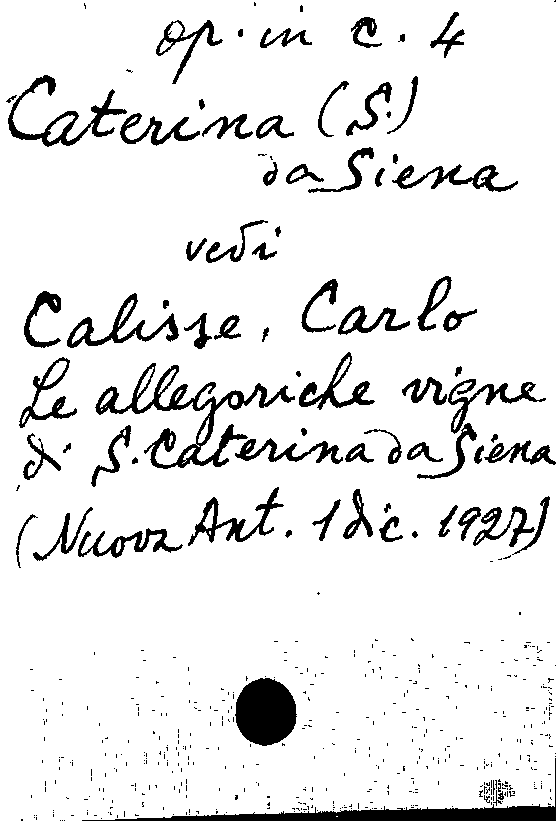 op. in c. 4
Caterina (S.)
da Siena
vedi
Calisse, Carlo
Le allegoriche vigne
di S. Caterina da Siena
(Nuova Ant. 1 dic. 1927)